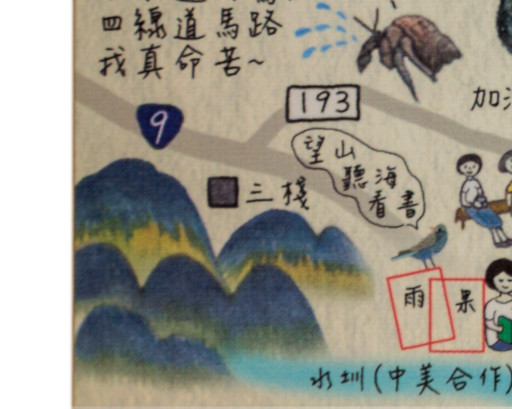 四線道馬路
我真命苦~
193
加
9
望山
聽海
看書
三棧
雨
果
水圳(中美合作)